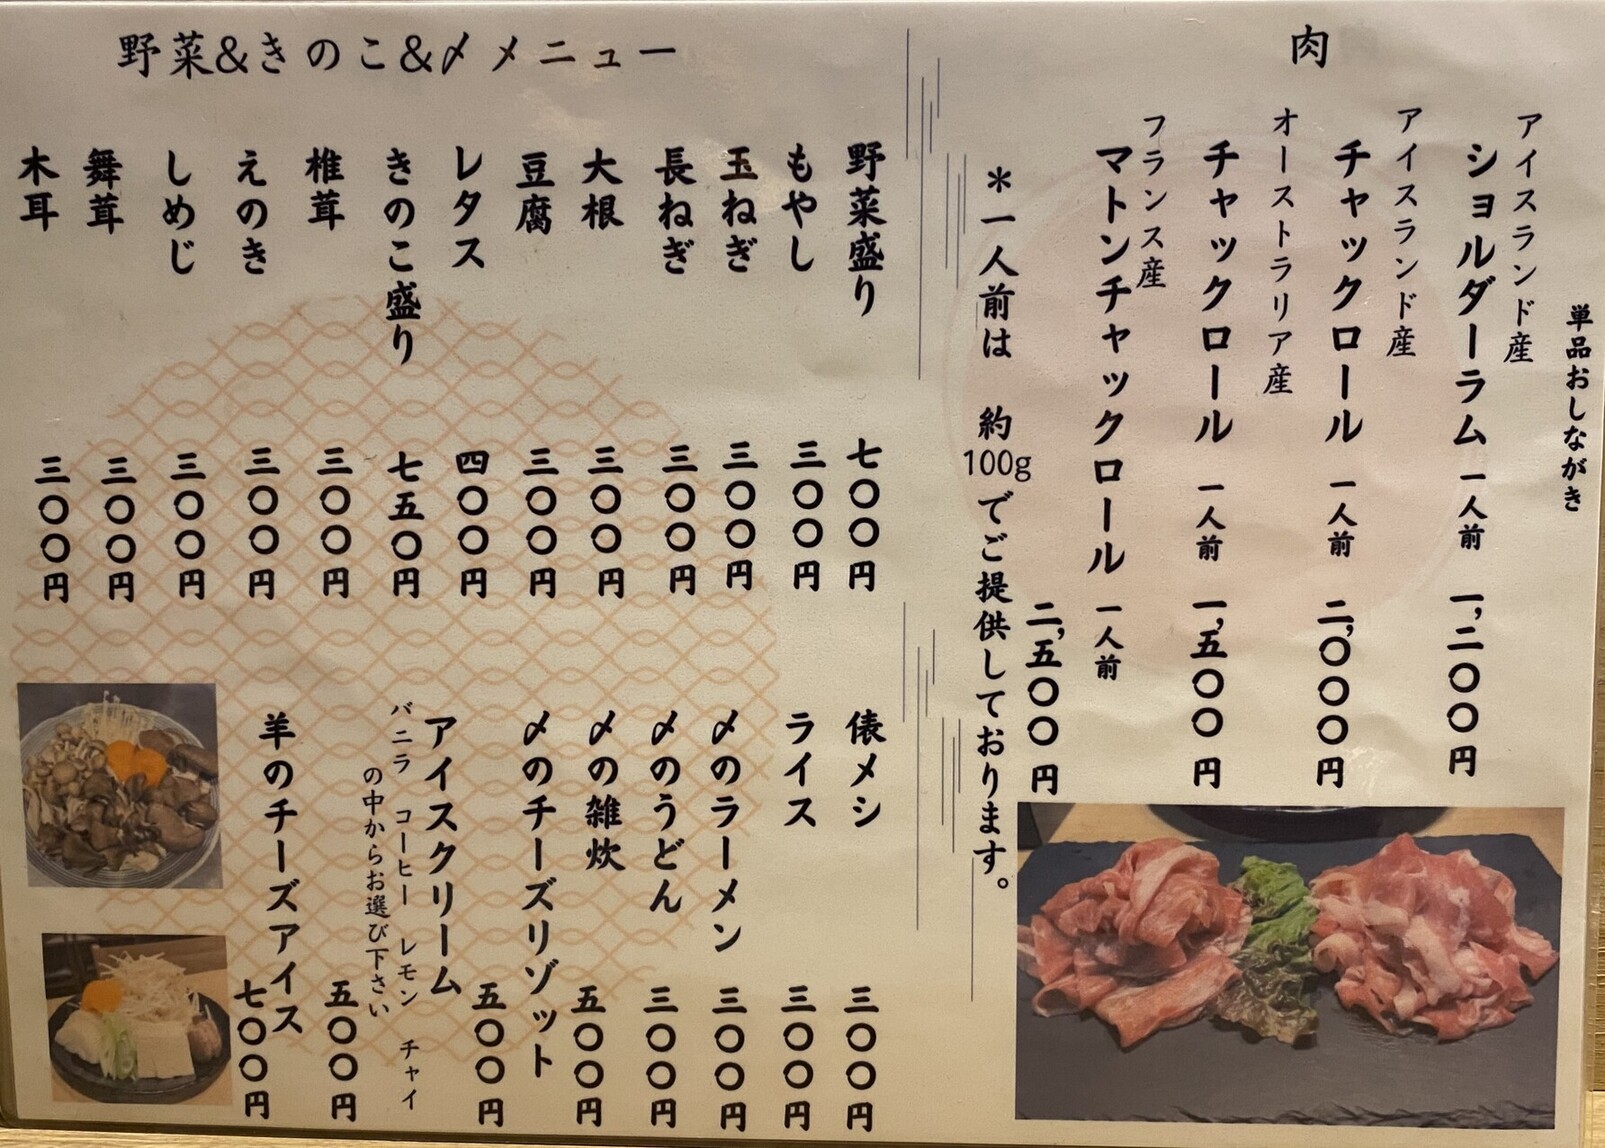 肉
単品おしながき
アイスランド産
ショルダーラム 一人前 一,二〇〇円
アイスランド産
チャックロール 一人前 二,〇〇〇円
オーストラリア産
チャックロール 一人前 一,五〇〇円
フランス産
マトンチャックロール 一人前
二,五〇〇円
*一人前は 約100gでご提供しております。
野菜&きのこ&〆メニュー
野菜盛り 七〇〇円
もやし 三〇〇円
玉ねぎ 三〇〇円
長ねぎ 三〇〇円
大根 三〇〇円
豆腐 三〇〇円
レタス 四〇〇円
きのこ盛り 七五〇円
椎茸 三〇〇円
えのき 三〇〇円
しめじ 三〇〇円
舞茸 三〇〇円
木耳 三〇〇円
俵メシ 三〇〇円
ライス 三〇〇円
〆のラーメン 三〇〇円
〆のうどん 三〇〇円
〆の雑炊 五〇〇円
〆のチーズリゾット 五〇〇円
アイスクリーム
バニラ コーヒー レモン チャイ
の中からお選び下さい
五〇〇円
羊のチーズアイス 七〇〇円